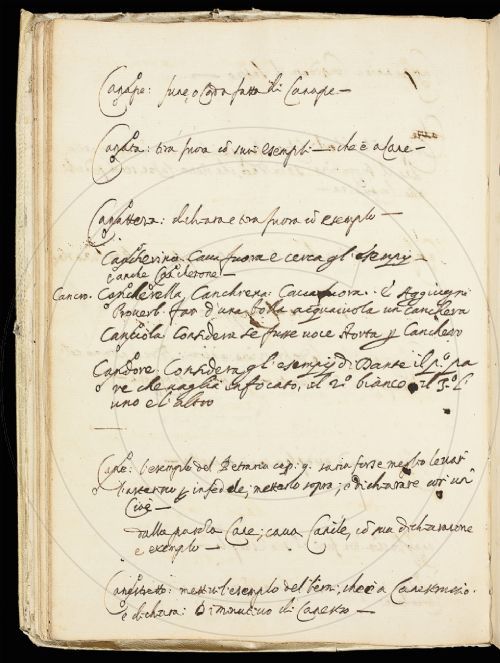 Canape: fune, o corda fatta di Canape —
Canata: tira fuora co suoi esempli — che è a Cane —
Canattera: dichiara e tira fuora co esemplo —
Cancherino. Cava fuora e cerca gl'esempij
e anche Cancherone —
Cancro. Cancherella, Canchrena: Cava fuora. E Aggiugni
Proverb. far d'una bolla acquaiuola un canchero
Canciola. Considera se fusse voce storta p Canchero
Candore. Considera gl'esempij di Dante il p.o pa
re che vaglia infocato, il 2.o bianco, il 3.o l'
uno e l'altro
Cane: l'esemplo del Petrarca cap: 9. saria forse meglio levar
infedele, metterlo sopra; e dichiarare cori un
Cioè —
dalla parola Cane; cava Canile, co sua dichiarazione
e exemplo —
Canestretto: metti l'esemplo del bern: che è a Canestruccio.
e dichiara: Diminutivo di Canestro —